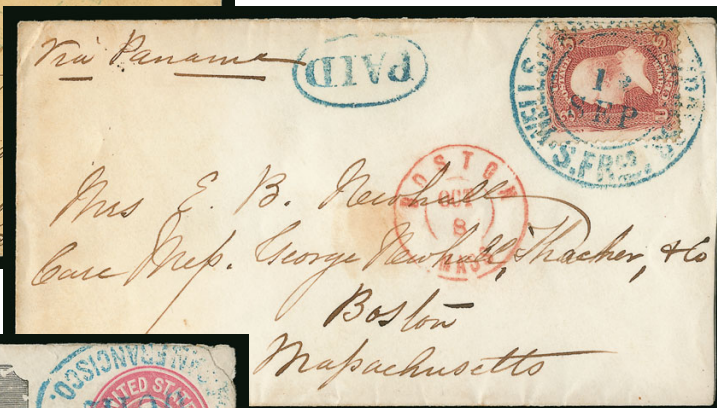 Via Panama
PAID
WELLS,
S. FRCO.
SEP
BOSTON
OCT
8
MASS
Mrs E. B. Newhall
Care Mess. George Newhall, Thacher, & Co
Boston
Massachusetts
N FRANCISCO.
TED ST